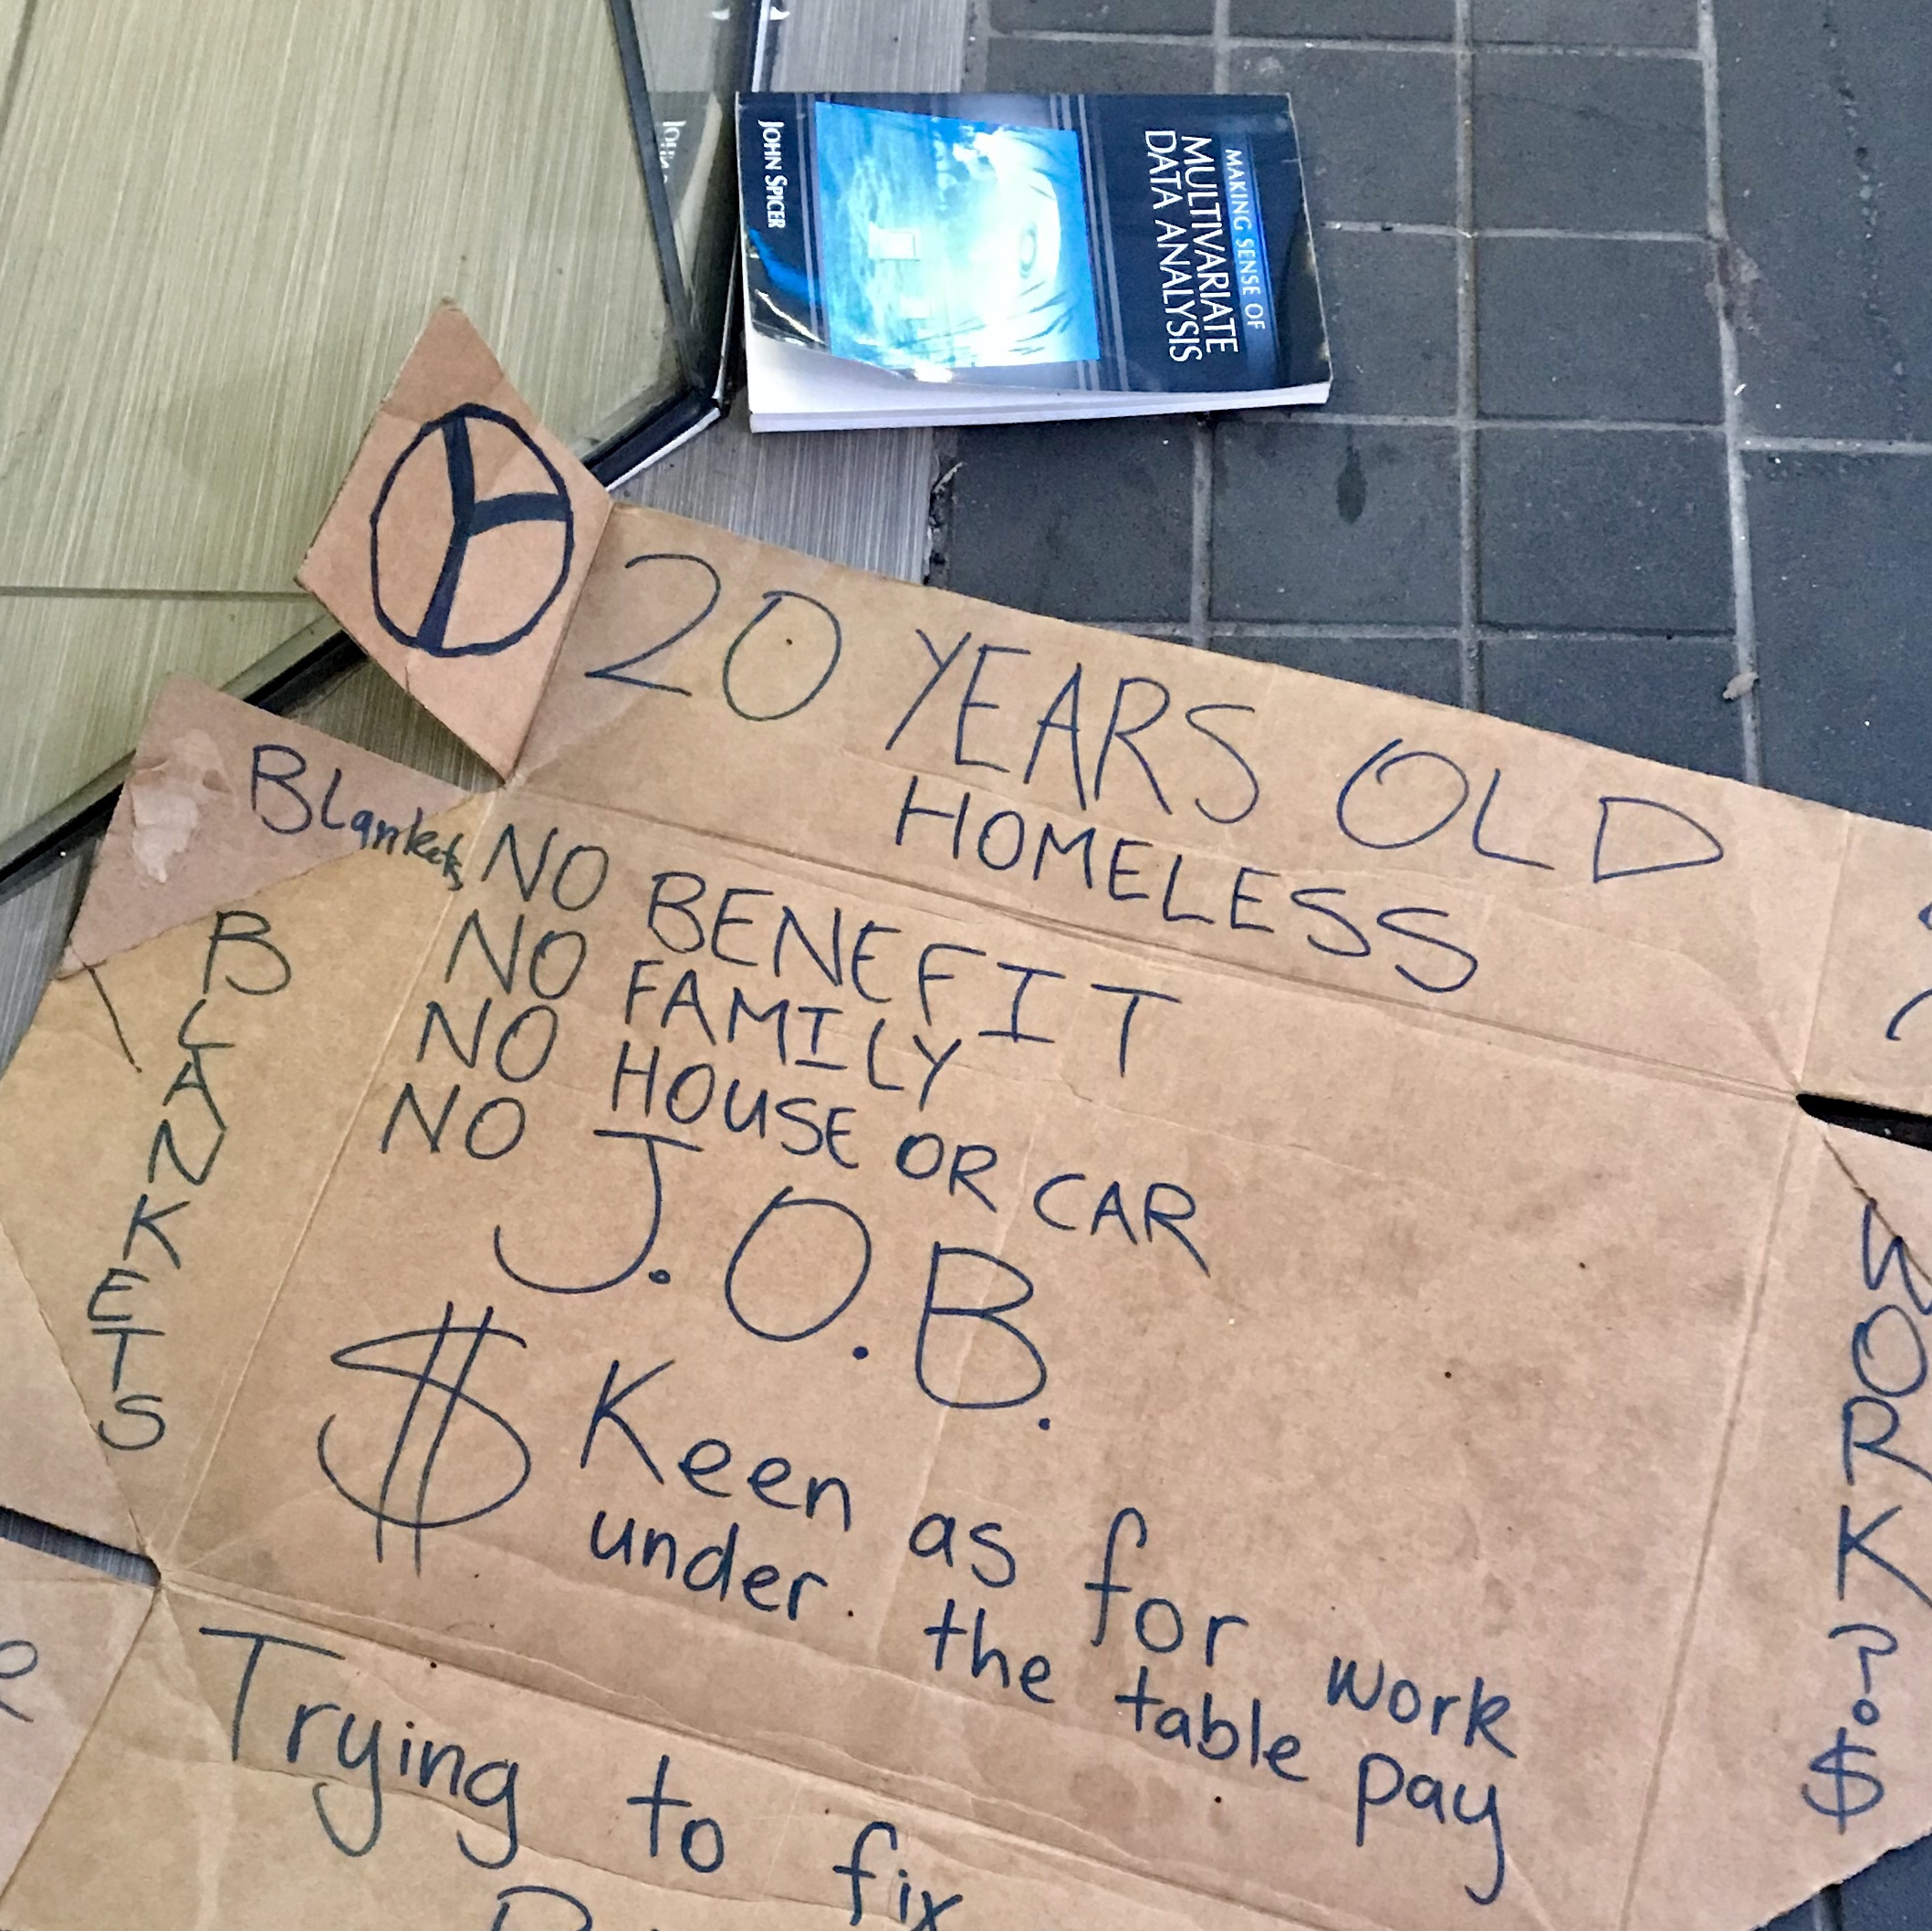 MAKING SENSE OF
MULTIVARIATE
DATA ANALYSIS
JOHN SPICER
20 YEARS OLD
HOMELESS
Blankets
BLANKETS
NO BENEFIT
NO FAMILY
NO HOUSE OR CAR
NO J.O.B.
$ Keen as for work
under the table pay
WORK?$
Trying to fix